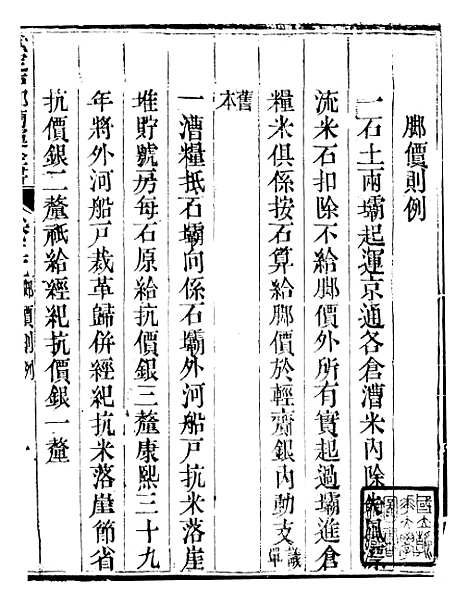 腳價則例
一石土兩壩起運京通各倉漕米內除風漂
流米石扣除不給腳價外所有實起過壩進倉
糧米俱係按石算給腳價於輕齎銀內動支議單
舊本
一漕糧抵石壩向係石壩外河船戶抗米落崖
堆貯號房每石原給抗價銀三釐康熙三十九
年將外河船戶裁革歸併經紀抗米落崖節省
抗價銀二釐祇給經紀抗價銀一釐
腳價則例